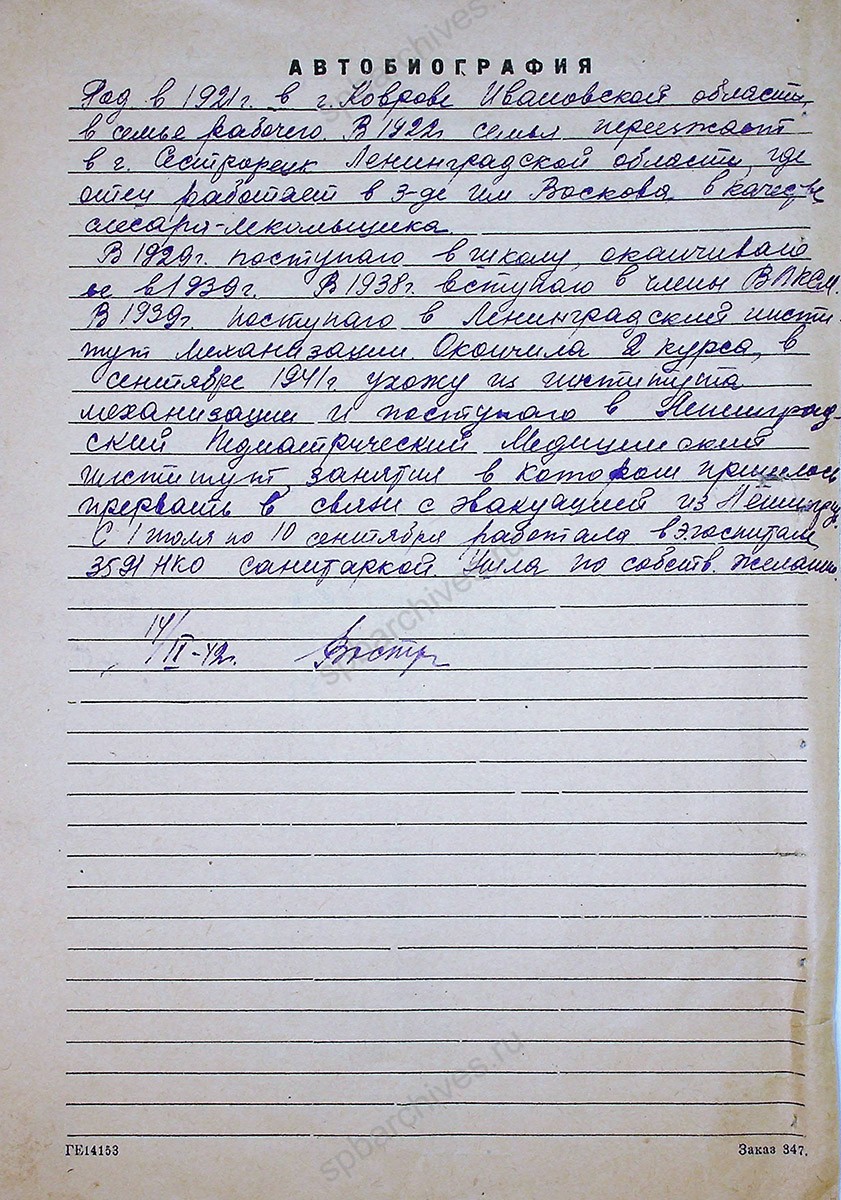 АВТОБИОГРАФИЯ
Род в 1921г. в г. Коврове Ивановской области,
в семье рабочего. В 1922г семья переезжает
в г. Сестрорецк Ленинградской области, где
отец работает в з-де им Воскова в качестве
слесаря-лекальщика.
В 1929г. поступаю в школу, оканчиваю
ее в 1939г. В 1938г. вступаю в члены ВЛКСМ.
В 1939г поступаю в Ленинградский инсти-
тут механизации. Окончила 2 курса, в
сентябре 1941г. ухожу из института
механизации и поступаю в Ленинград-
ский Педиатрический Медицинский
институт, занятия в котором пришлось
прервать в связи с эвакуацией из
С 1 июля по 10 сентября работала в
3591 НКО санитаркой. Ушла по собств.
14/
-42г.
ГЕ14153
Заказ 347.
spbarchives.ru
spbarchives.ru
spbarchives.ru
spbarchives.ru